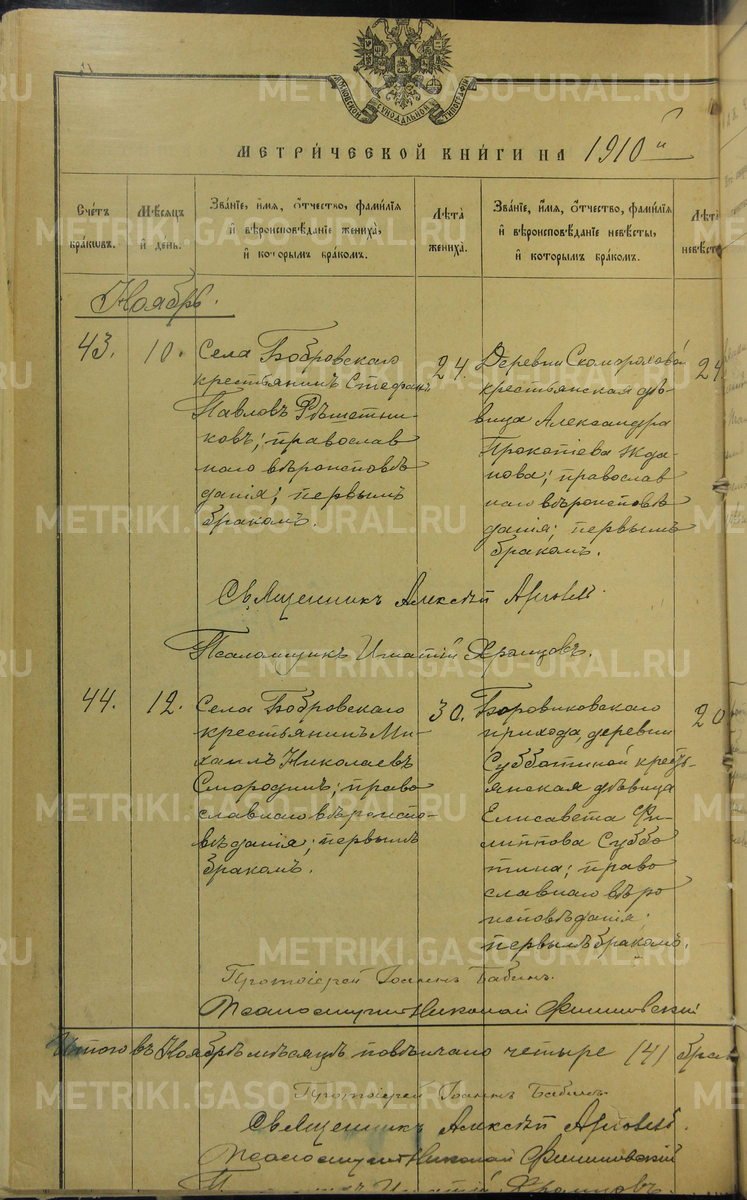 МОСКОВСКОЙ СѴНОДАЛЬНОЙ ТИПОГРАФІИ
МЕТРИ́ЧЕСКОЙ КНИ́ГИ НА 1910 й
Сче́тъ бра́кωвъ.
Мѣ́сяцъ и҆ де́нь.
Зва́нїе, и҆́мя, ѻ҆́тчество, фами́лїя
и҆ вѣроисповѣ́данїе жениха̀,
и҆ кото́рымъ бра́комъ.
Лѣ́та жениха̀.
Зва́нїе, и҆́мя, ѻ҆́тчество, фами́лїя
и҆ вѣроисповѣ́данїе невѣ́сты,
и҆ кото́рымъ бра́комъ.
Лѣ́та
невѣ́ст
Ноябрь.
43.
10.
Села Бобровскаго
крестьянинъ Стефанъ
Павловъ Рѣшетни-
ковъ; православ
наго вѣроисповѣ
данія; первымъ
бракомъ.
24
Деревни Скомороховой
крестьянская дѣ-
вица Александра
Прокопіева Жда-
нова; православ
наго вѣроисповѣ
данія; первымъ
бракомъ.
24
Священникъ Алексѣй
Псаломщикъ Игнатій Храмцовъ.
44.
12.
Села Бобровскаго
крестьянинъ Ми-
хаилъ Николаевъ
Смородинъ; право
славнаго вѣроиспо-
вѣданія; первымъ
бракомъ.
30.
Боровиковскаго
прихода, деревни
Субботиной кресть-
янская дѣвица
Елисавета Фи-
липпова Суббо
тина; право
славнаго вѣро
исповѣданія.
первымъ бракомъ.
20
Протоіерей Іоаннъ Бабинъ.
Псаломщикъ Николай
Итого въ Ноябрѣ мѣсяцѣ повѣнчано четыре (4) брак
Протоіерей Іоаннъ Бабинъ
Священникъ Алексѣй
Псаломщикъ Николай
Игнатій Храмцовъ
METRIKI.GASO-URAL.RU